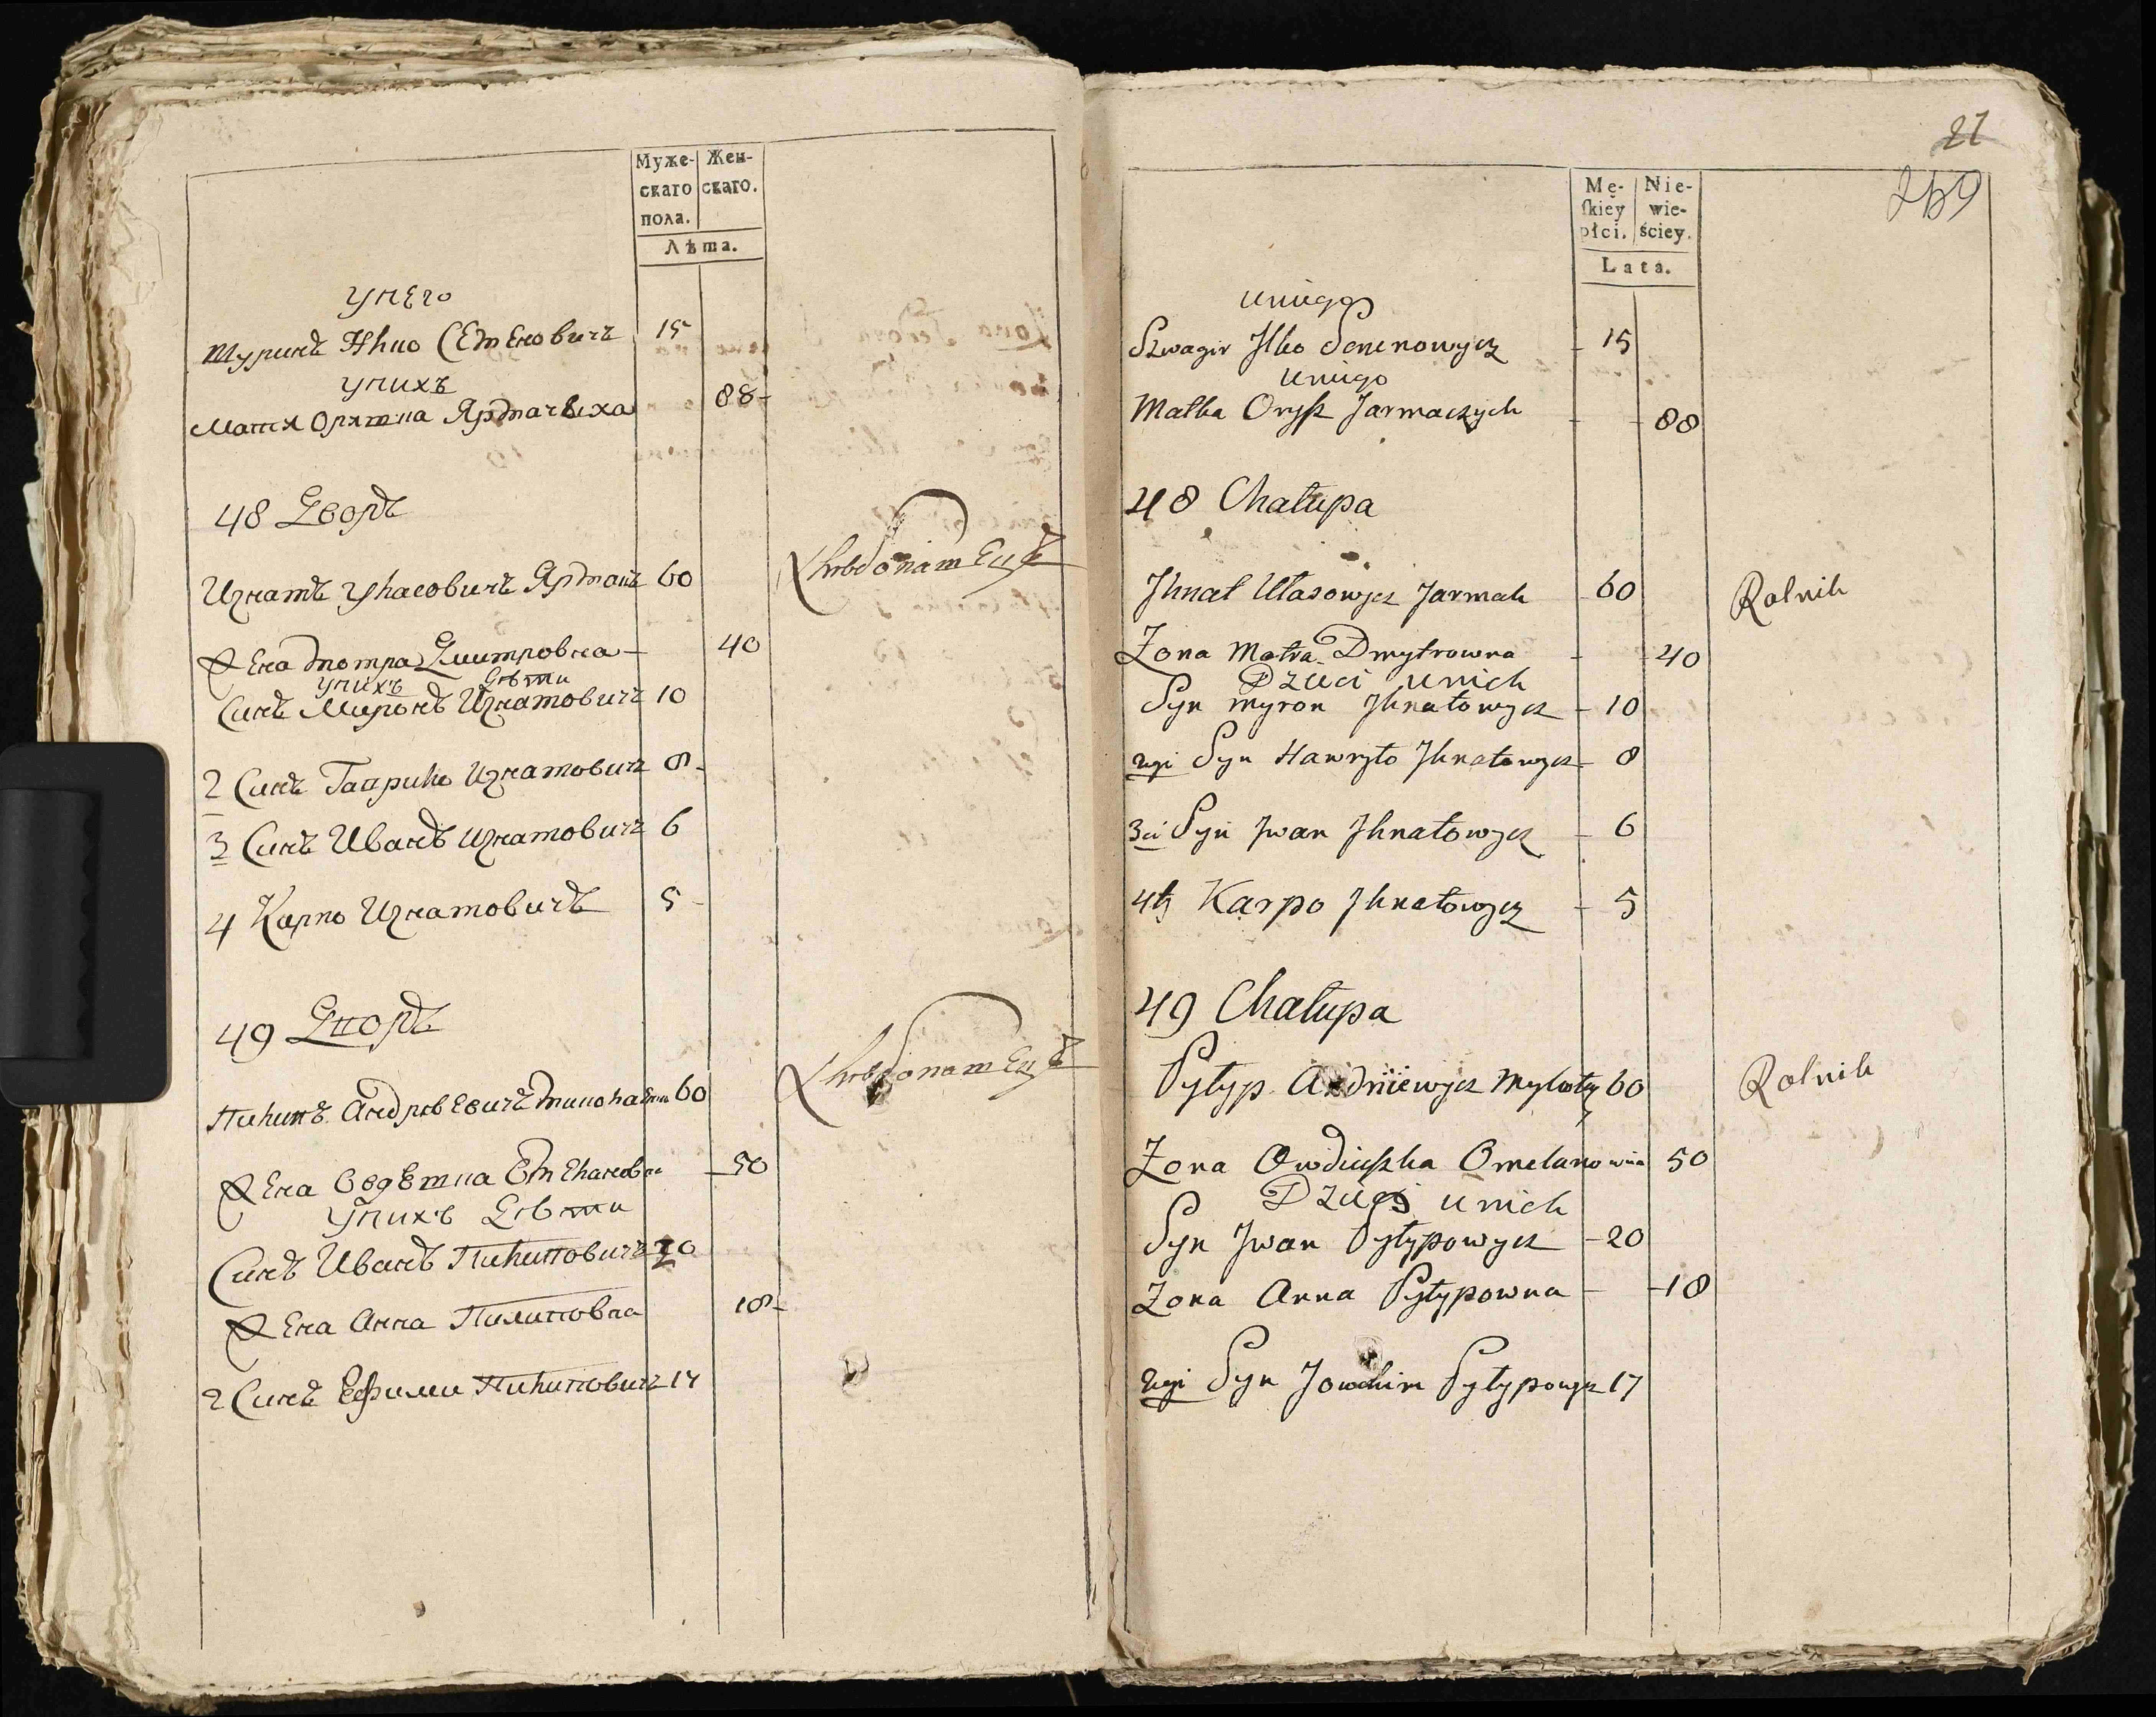 Муже-
скаго
пола.
Жен-
скаго.
Лѣта.
У него
Шуринъ Илко Семеновичъ 15
У нихъ
Матка Оришка Ярмачиха 88
48 Дворъ
Игнатъ Уласовичъ Ярмакъ 60
Хлебопашецъ
Жена Мотра Дмитровна 40
У нихъ Дѣти
Синъ Миронъ Игнатовичъ 10
2 Синъ Гаврило Игнатовичъ 8
3 Синъ Иванъ Игнатовичъ 6
4 Карпо Игнатовичъ 5
49 Дворъ
Пилипъ Андрѣевичъ 60
Хлебопашецъ
Жена Омеляновна 50
У нихъ Дѣти
Синъ Иванъ Пилиповичъ 20
Жена Анна Пилиповна 18
2 Синъ Ефими Пилиповичъ 17
21
259
Mę-
ſkiey
płci.
Nie-
wie-
ściey.
Lata.
u niego
Szwagir Ilko Semenowycz 15
u niego
Matka Orysz Jarmaczych 88
48 Chałupa
Ihnat Ułasowycz Jarmak 60 Rolnik
Żona Motra Dmytrowna 40
Dzieci u nich
Syn Myron Ihnatowycz 10
2gi Syn Hawryło Ihnatowycz 8
3ci Syn Jwan Ihnatowycz 6
4ty Karpo Ihnatowycz 5
49 Chałupa
Pyłyp Andriiewycz 60 Rolnik
Żona Owdiuszka Omelanowna 50
Dzieci u nich
Syn Jwan Pyłypowycz 20
Żona Anna Pyłypowna 18
2gi Syn Jowchim Pyłypowycz 17